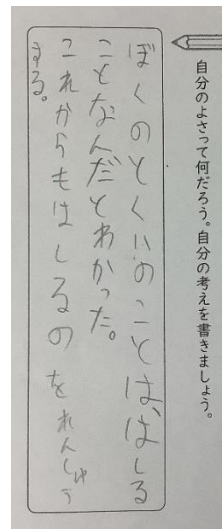 自分のよさって何だろう。自分の考えを書きましょう。
ぼくのとくいのことは、はしる
ことなんだとわかった。
これからもはしるのをれんしゅう
する。